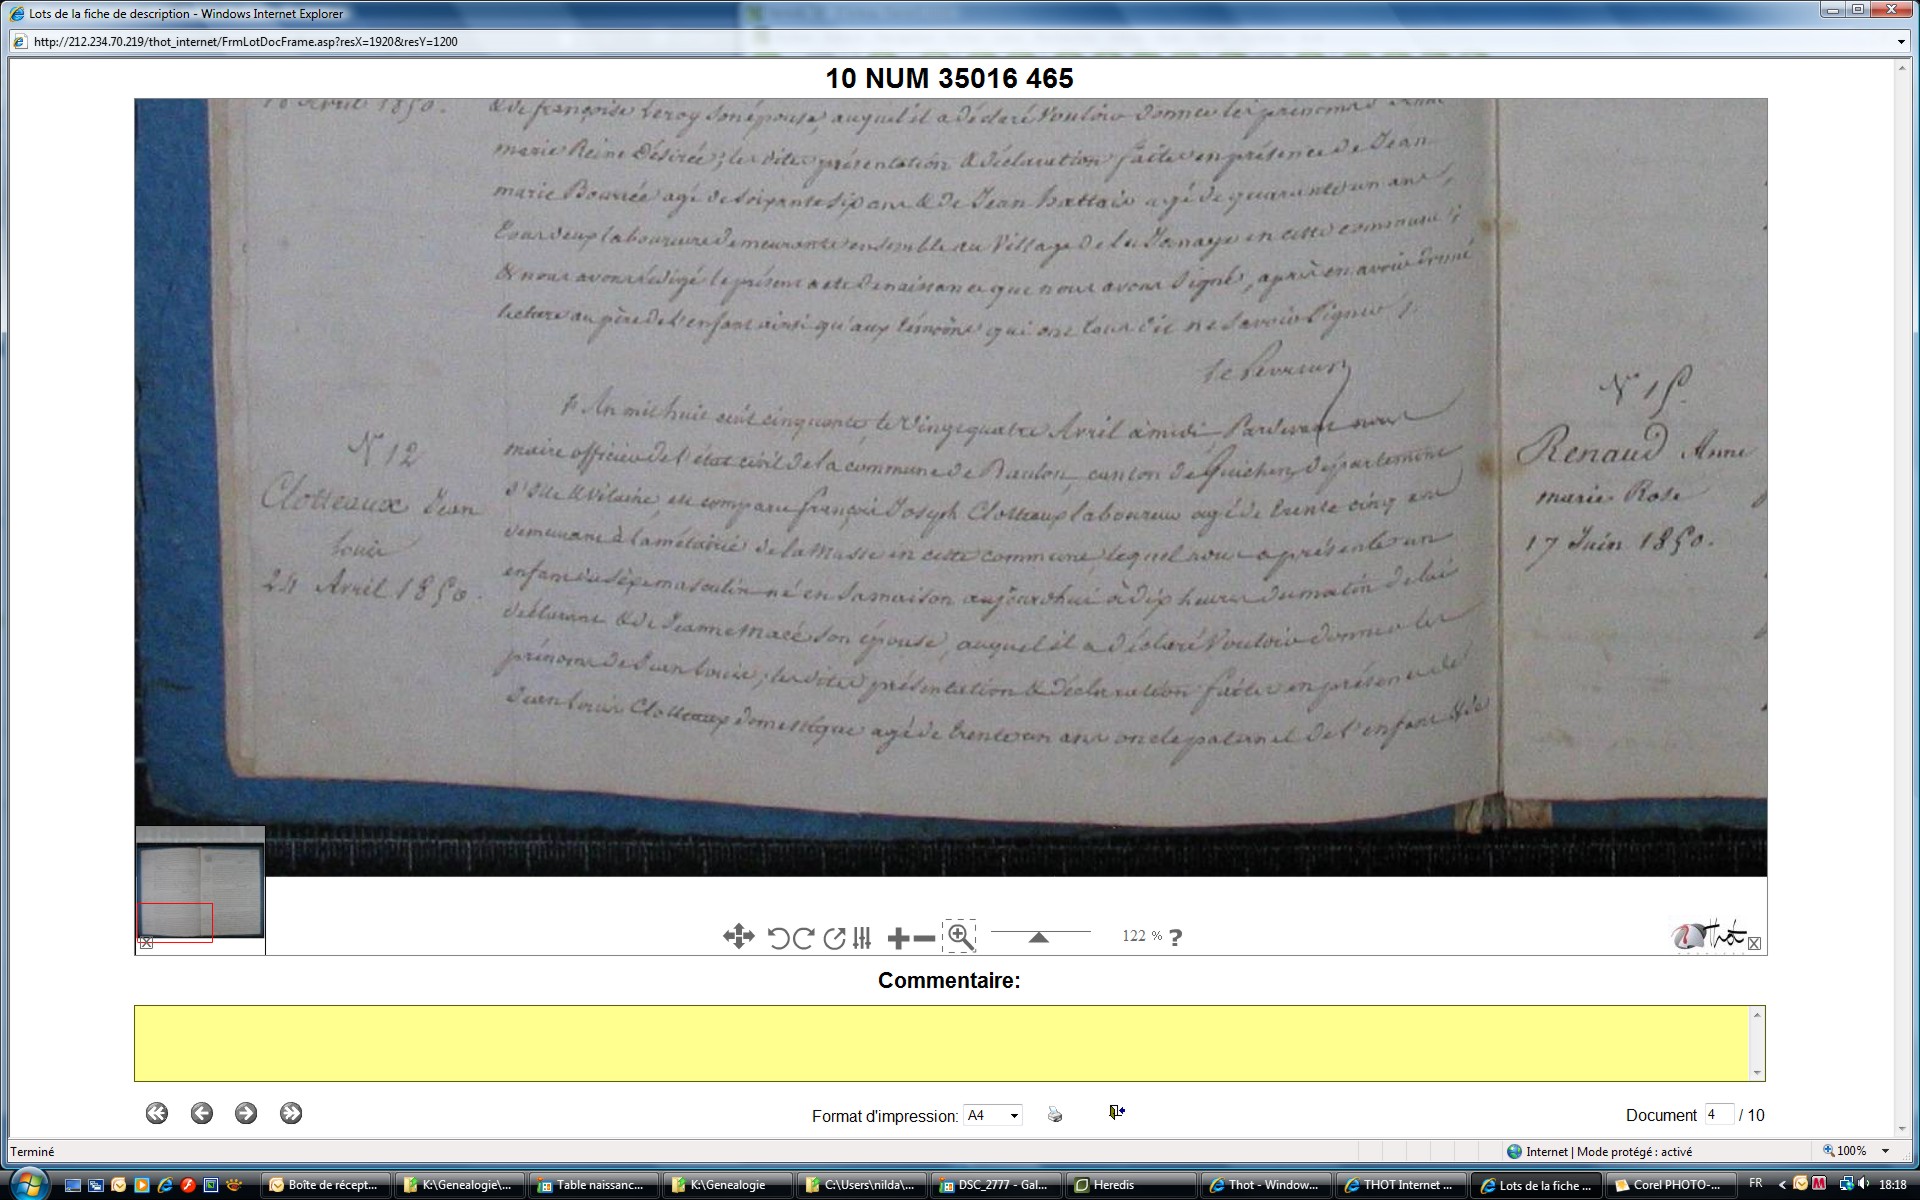 Lots de la fiche de description - Windows Internet Explorer
http://212.234.70.219/thot_internet/FrmLotDocFrame.asp?resX=1920&resY=1200
10 NUM 35016 465
Avril 1850.
& de françoise Leroy son épouse, auquel il a déclaré vouloir donner les prénoms d'Anne
marie Reine Désirée; les dites présentation & déclaration faites en présence de Jean
marie Bourrée agé de soixante six ans & de Jean hattais agé de quarante un ans,
tous deux laboureurs demeurants ensemble au Village de la in cette commune;
& nous avons rédigé le présent acte de naissance que nous avons signé, après en avoir donné
lecture au père de l'enfant ainsi qu'aux témoins qui ont tous dit ne savoir signer
N° 12
Clotteaux Jean
louis
24 Avril 1850.
An mil huit cent cinquante, le vingt quatre Avril à midi Pardevant nous
maire officier de l'état civil de la commune de Baulon, canton de Guichen, département
d'Ille & vilaine, est comparu françois Joseph Clotteaux laboureur agé de trente cinq ans
demeurant à la métairie de la Musse in cette commune lequel nous a présenté un
enfant du sexe masculin né en sa maison aujourdhui à dix heures du matin de lui
déclarant & de Jeanne Macé son épouse, auquel il a déclaré vouloir donner les
prénoms de Jean louis; les dites présentation & déclaration faites en présence de
Jean louis Clotteaux domestique agé de trente un ans oncle paternel de l'enfant & de
N° 15.
Renaud Anne
marie Rose
17 Juin 1850.
122 % ?
Thot
Commentaire:
Format d'impression: A4
Document 4 / 10
Terminé
Internet | Mode protégé : activé
100%
Boîte de récept...
K:\Genealogie\...
Table naissanc...
K:\Genealogie
C:\Users\nilda\...
DSC_2777 - Gal...
Heredis
Thot - Window...
THOT Internet ...
Lots de la fiche ...
Corel PHOTO-...
FR
18:18